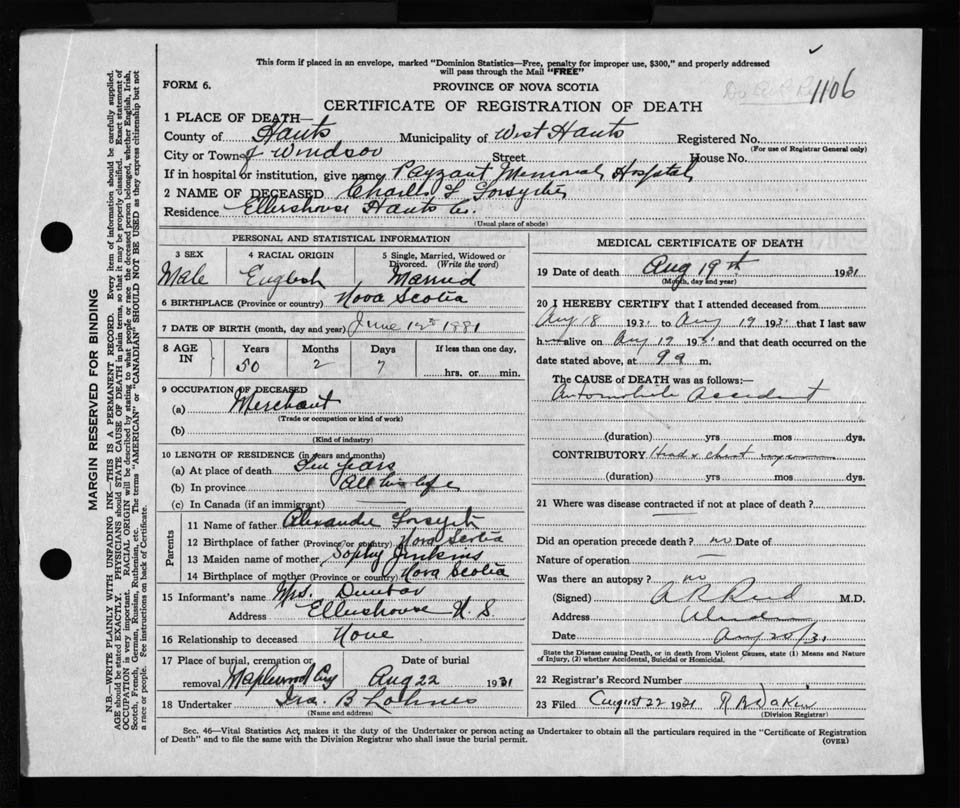 This form if placed in an envelope, marked "Dominion Statistics—Free, penalty for improper use, $300," and properly addressed
will pass through the Mail "FREE"
1106
FORM 6.
PROVINCE OF NOVA SCOTIA
CERTIFICATE OF REGISTRATION OF DEATH
1 PLACE OF DEATH—
County of Hants Municipality of West Hants Registered No.
(For use of Registrar General only)
City or Town of Windsor Street House No.
If in hospital or institution, give name Payzant Memorial Hospital
2 NAME OF DECEASED Charles L Forsythe
Residence Ellershouse Hants Co.
(Usual place of abode)
PERSONAL AND STATISTICAL INFORMATION
3 SEX 4 RACIAL ORIGIN 5 Single, Married, Widowed or
Divorced. (Write the word)
Male English Married
6 BIRTHPLACE (Province or country) Nova Scotia
7 DATE OF BIRTH (month, day and year) June 12th 1881
8 AGE IN Years Months Days If less than one day,
50 2 7 hrs. or min.
9 OCCUPATION OF DECEASED
(a) Merchant
(Trade or occupation or kind of work)
(b)
(Kind of industry)
10 LENGTH OF RESIDENCE (in years and months)
(a) At place of death years
(b) In province All his life
(c) In Canada (if an immigrant)
Parents
11 Name of father Alexander Forsyth
12 Birthplace of father (Province or country) Nova Scotia
13 Maiden name of mother Sophy Jenkins
14 Birthplace of mother (Province or country) Nova Scotia
15 Informant's name Mrs. Dunbar
Address Ellershouse N.S
16 Relationship to deceased None
17 Place of burial, cremation or Date of burial
removal Maplewood Aug 22 1931
18 Undertaker Ira B Lohnes
(Name and address)
MEDICAL CERTIFICATE OF DEATH
19 Date of death Aug 19th 1931
(Month, day and year)
20 I HEREBY CERTIFY that I attended deceased from
Aug 18 1931 to Aug 19 1931 that I last saw
h alive on Aug 19 1931 and that death occurred on the
date stated above, at 9 a m.
The CAUSE OF DEATH was as follows:—
Automobile Accident
(duration) yrs mos dys.
CONTRIBUTORY Head & chest
(duration) yrs mos dys.
21 Where was disease contracted if not at place of death?
Did an operation precede death? no Date of
Nature of operation
Was there an autopsy? no
(Signed) M.D.
Address Windsor
Date Aug 20/31
State the Disease causing Death, or in death from Violent Causes, state (1) Means and Nature
of Injury, (2) whether Accidental, Suicidal or Homicidal.
22 Registrar's Record Number
23 Filed August 22 1931
(Division Registrar)
Sec. 46—Vital Statistics Act, makes it the duty of the Undertaker or person acting as Undertaker to obtain all the particulars required in the "Certificate of Registration
of Death" and to file the same with the Division Registrar who shall issue the burial permit.
(OVER)
MARGIN RESERVED FOR BINDING
N.B.—WRITE PLAINLY WITH UNFADING INK—THIS IS A PERMANENT RECORD. Every item of information should be carefully supplied.
AGE should be stated EXACTLY. PHYSICIANS should STATE CAUSE OF DEATH in plain terms, so that it may be properly classified. Exact statement of
OCCUPATION is very important. RACIAL ORIGIN will be described by stating to what people or race the deceased person belonged, whether English, Irish,
Scotch, French, German, Russian, Ruthenian, etc. The terms "AMERICAN" or "CANADIAN" SHOULD NOT BE USED as they express citizenship but not
a race or people. See instructions on back of Certificate.